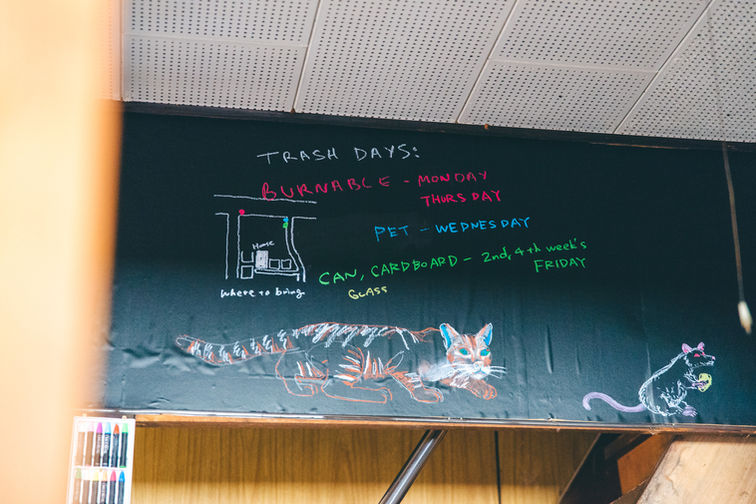 TRASH DAYS:
BURNABLE - MONDAY
THURSDAY
PET - WEDNESDAY
CAN, CARDBOARD - 2nd, 4th week's
FRIDAY
GLASS
Home
Where to bring